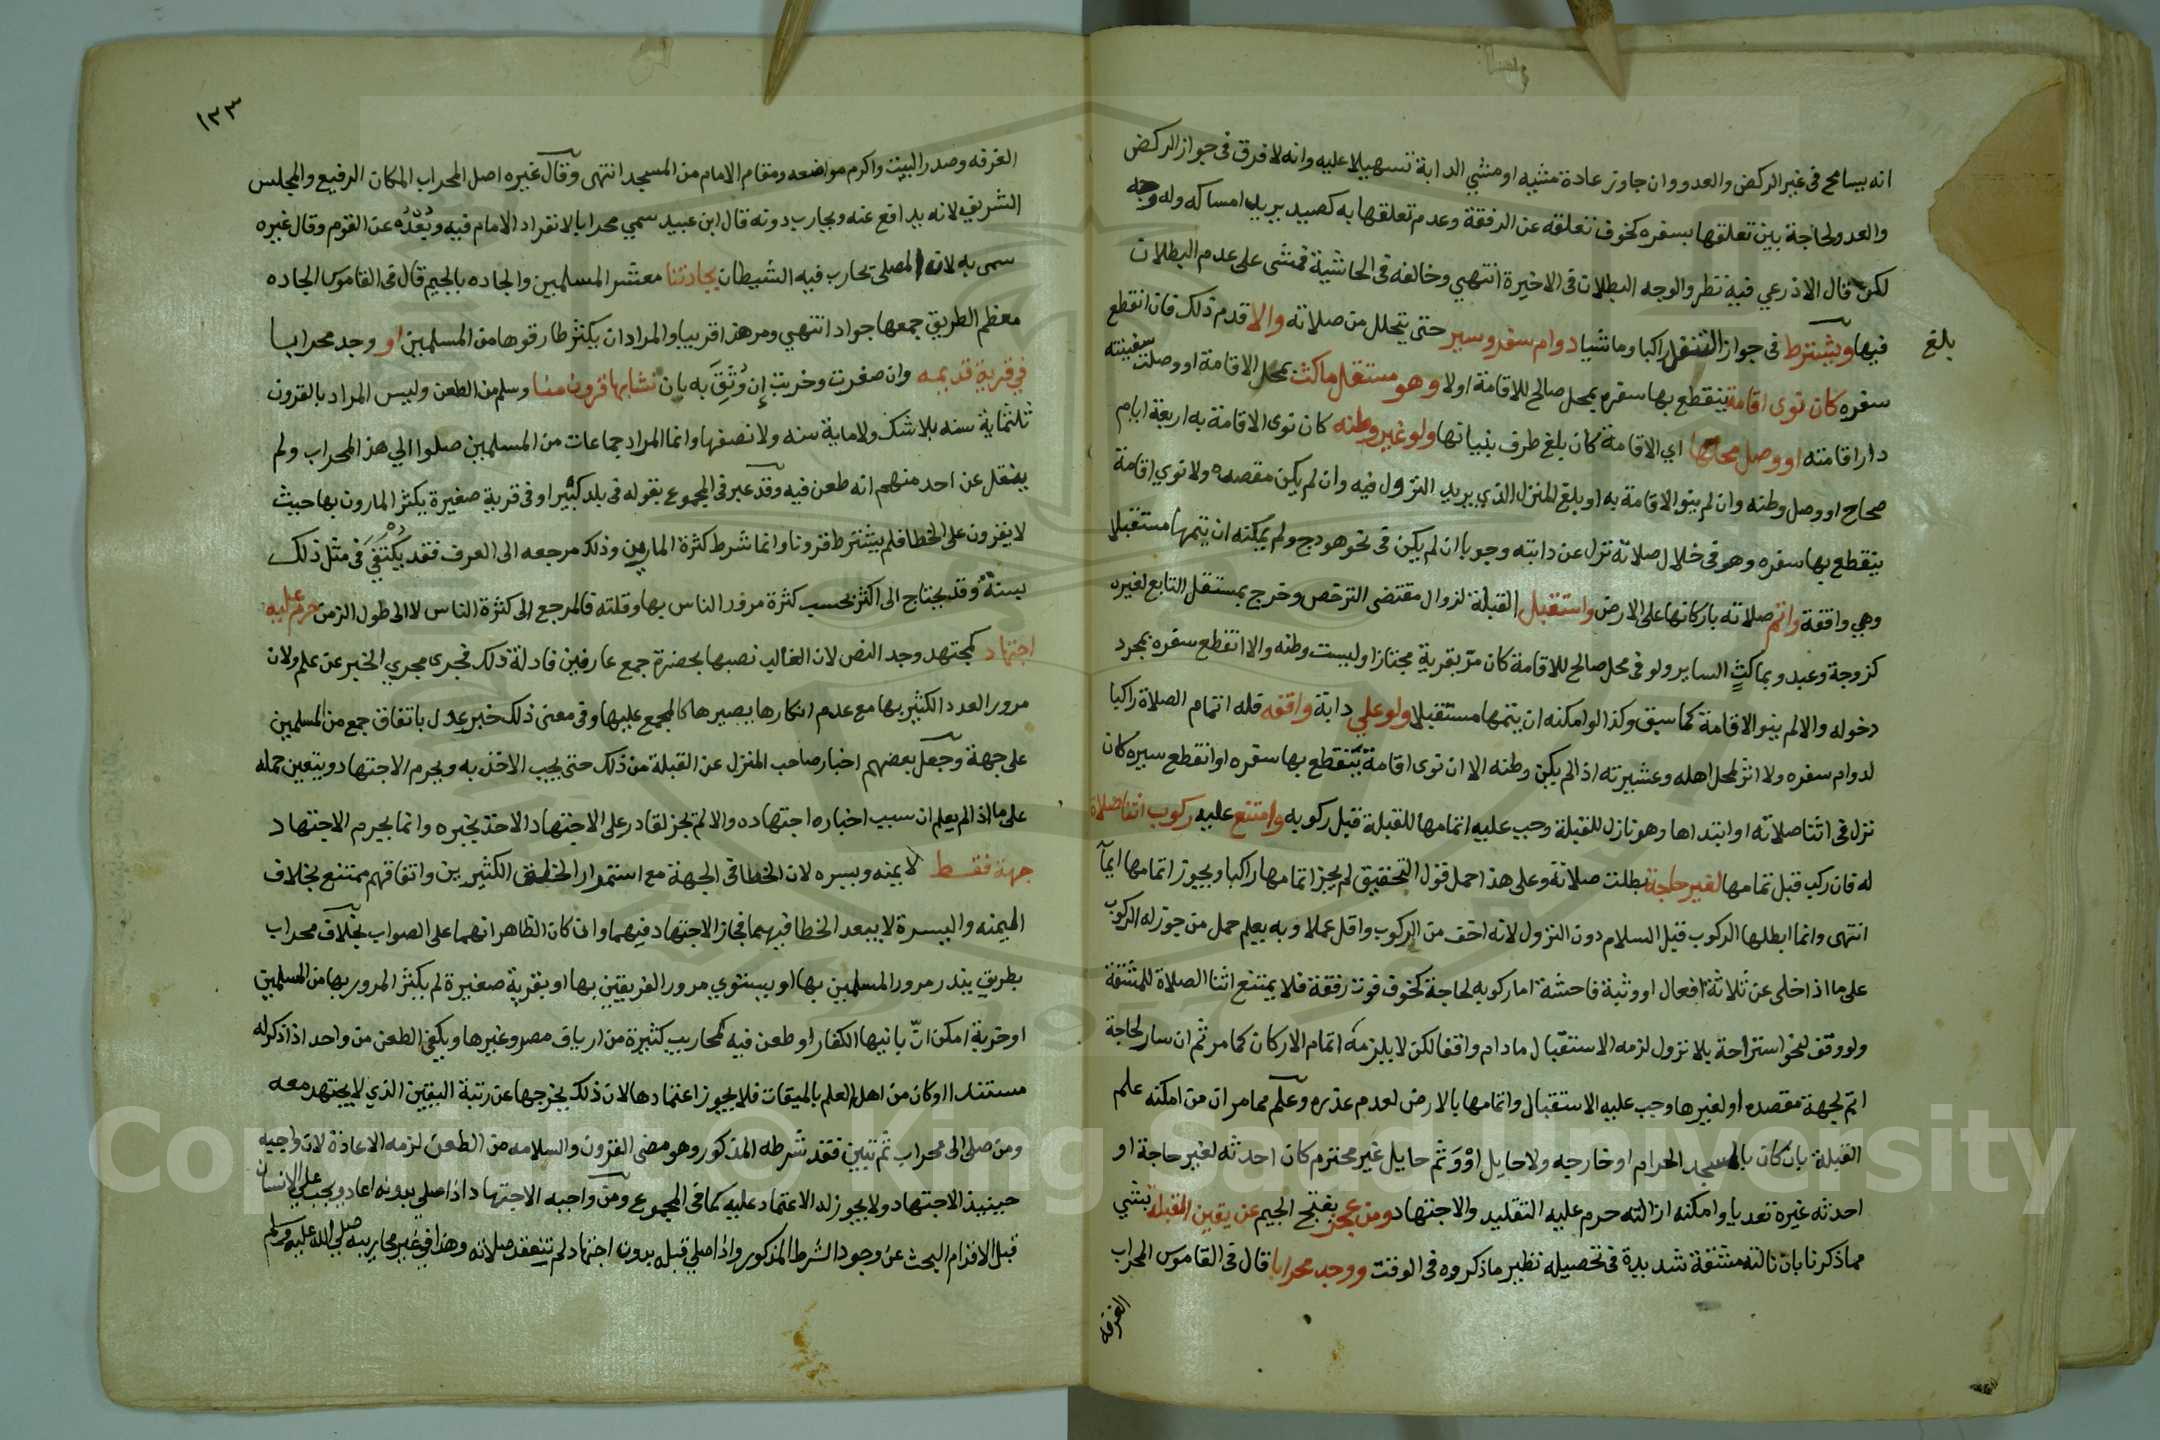 انه يسامح في غير الركض والعدو وان جاوز عادة مشيه او مشي الدابة تسهيلا عليه وانه لا فرق في جواز الركض
والعدو لحاجة بين تعلقها بسفره كخوف تخلفه عن الرفقة وعدم تعلقها به كصيد يريد امساكه وله وجه
لكن قال الاذرعي فيه نظر والوجه البطلان في الاخيرة انتهي وخالفه في الحاشية فمشى على عدم البطلان
فيها ويشترط في جواز التنفل راكبا وماشيا دوام سفر وسير حتى يتحلل من صلاته والا قدم ذلك فان انقطع
بلغ
سفره كان نوى اقامة ينقطع بها سفره بمحل صالح للاقامة اولا وهو مستقل ماكث بمحل الاقامة او وصلت سفينته
دار اقامته او وصل محلها اي الاقامة كان بلغ طرف بنيانها ولو غير وطنه كان نوى الاقامة به اربعة ايام
صحاح او وصل وطنه وان لم ينو الاقامة به او بلغ المنزل الذي يريد النزول فيه وان لم يكن مقصده ولا نوي اقامة
ينقطع بها سفره وهو في خلال صلاته نزل عن دابته وجوبا ان لم يكن في نحو هودج ولم يمكنه ان يتمها مستقبلا
وهي واقفة واتم صلاته باركانها على الارض واستقبل القبلة لزوال مقتضى الترخص وخرج بمستقل التابع لغيره
كزوجة وعبد وبماكث الساير ولو في محل صالح للاقامة كان مر بقرية مجتازا وليست وطنه والا انقطع سفره بمجرد
دخوله والا لم ينو الاقامة كما سبق وكذا لو امكنه ان يتمها مستقبلا ولو علي دابة واقفه فله اتمام الصلاة راكبا
لدوام سفره ولا اثر لمحل اهله وعشيرته اذا لم يكن وطنه الا ان نوى اقامة ينقطع بها سفره او انقطع سيره كان
نزل في اثنا صلاته او ابتداها وهو نازل للقبلة وجب عليه اتمامها للقبلة قبل ركوبه وامتنع عليه ركوب اثنا صلاة
له فان ركب قبل تمامها لغير حاجة بطلت صلاته وعلى هذا حمل قول التحقيق لم يجز اتمامها راكبا ويجوز اتمامها ايمآ
انتهى وانما ابطلها الركوب قبل السلام دون النزول لانه اخف من الركوب واقل عملا وبه يعلم حمل من جوز له الركوب
على ما اذا خلى عن ثلاثة افعال او وثبة فاحشة اما ركوبه لحاجة كخوف فوت رفقة فلا يمتنع اثنا الصلاة للمشقة
ولو وقف لنحو استراحة بلا نزول لزمه الاستقبال ما دام واقفا لكن لا يلزمه اتمام الاركان كما مر ثم ان سار لحاجة
اتم لجهة مقصده او لغيرها وجب عليه الاستقبال واتمامها بالارض لعدم عذره وعلم مما مر ان من امكنه علم
القبلة بان كان بالمسجد الحرام او خارجه ولا حايل او وثم حايل غير محترم كان احدثه لغير حاجة او
احدثه غيره تعديا وامكنه ازالته حرم عليه التقليد والاجتهاد ومن عجز بفتح الجيم عن يقين القبلة بشي
مما ذكرنا بان نالته مشقة شديدة في تحصيله نظير ما ذكروه في الوقت ووجد محرابا قال في القاموس المحراب
الغرفه
١٣٣
الغرفه وصدر البيت واكرم مواضعه ومقام الامام من المسجد انتهى وقال غيره اصل المحراب المكان الرفيع والمجلس
الشريف لانه يدافع عنه ويحارب دونه قال ابن عبيد سمي محرابا لانفراد الامام فيه وبُعْدُه عن القوم وقال غيره
سمى به لان المصلى يحارب فيه الشيطان بجادتنا معشر المسلمين والجاده بالجيم قال في القاموس الجاده
معظم الطريق جمعها جواد انتهي ومر هذا قريبا والمراد ان يكثر طارقوها من المسلمين او وجد محرابا
في قرية قديمه وان صغرت وخربت إن وُثِقَ به بان نشا بها قرون منا وسلم من الطعن وليس المراد بالقرون
ثلثماية سنه بلا شك ولا ماية سنه ولا نصفها وانما المراد جماعات من المسلمين صلوا الي هذا المحراب ولم
ينقل عن احد منهم انه طعن فيه وقد عبر في المجموع بقوله في بلد كبير او في قرية صغيرة يكثر المارون بها حيث
لا يقرون على الخطا فلم يشترط قرونا وانما شرط كثرة المارين وذلك مرجعه الى العرف فقد يُكْتَفَي في مثل ذلك
بسنة وقد يحتاج الى اكثر بحسب كثرة مرور الناس بها وقلته فالمرجع الى كثرة الناس لا الى طول الزمن حرم عليه
اجتهاد كمجتهد وجد النص لان الغالب نصبها بحضرة جمع عارفين فادلة ذلك فجرى مجري الخبر عن علم ولان
مرور العدد الكثير بها مع عدم انكارها يصيرها كالمجمع عليها وفي معنى ذلك خبر عدل باتفاق جمع من المسلمين
على جهة وجعل بعضهم اخبار صاحب المنزل عن القبلة من ذلك حتى يجب الاخذ به ويحرم الاجتهاد ويتعين حمله
على ما اذا لم يعلم ان سبب اخباره اجتهاده والا لم يجز لقادر على الاجتهاد الاخذ بخبره وانما يحرم الاجتهاد
جهة فقط لا يمنه ويسره لان الخطا في الجهة مع استمرار الخلق الكثيرين واتفاقهم ممتنع بخلاف
اليمنه واليسرة لا يبعد الخطا فيهما فجاز الاجتهاد فيهما وان كان الظاهر انهما على الصواب بخلاف محراب
بطريق يندر مرور المسلمين بها او يستوي مرور الفريقين بها او بقرية صغيرة لم يكثر المرور بها من المسلمين
او خربة امكن انّ يانيها الكفار او طعن فيه كمحاريب كثيرة من ارياف مصر وغيرها ويكفي الطعن من واحد اذا ذكر له
مستندا او كان من اهل العلم بالميقات فلا يجوز اعتمادها لان ذلك يخرجها عن رتبة اليقين الذي لا يجتهد معه
ومن صلى الى محراب ثم تبين فقد شرطه المذكور وهو مضى القرون والسلامه من الطعن لزمه الاعادة لان واجبه
حينيذ الاجتهاد ولا يجوز له الاعتماد عليه كما في المجموع ومن واجبه الاجتهاد اذا صلى بدونه اعاد ويجب على الانسان
قبل الاقدام البحث عن وجود الشرط المذكور واذا صلي قبله بدون اجتهاد لم تنعقد صلاته وهذا في غير محاريبه صلى الله عليه وسلم
Copyright © King Saud University